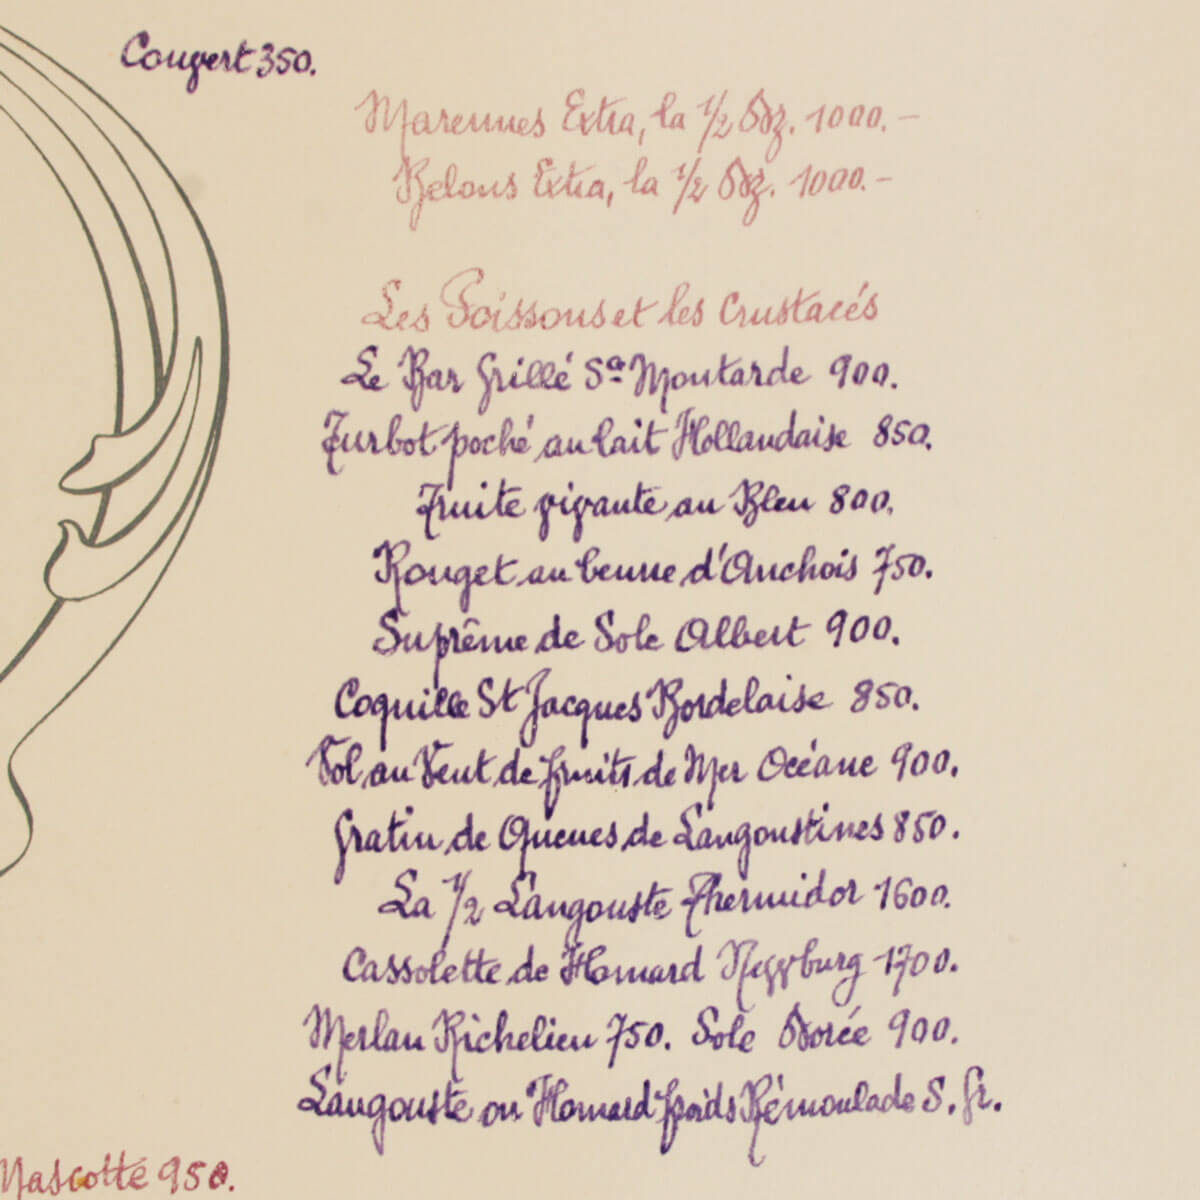 Couvert 350.
Marennes Extra, la 1/2 Dz. 1000.-
Belons Extra, la 1/2 Dz. 1000.-
Les Poissons et les Crustacés
Le Bar Grillé Sce Moutarde 900.
Turbot poché au lait Hollandaise 850.
Truite vivante au Bleu 800.
Rouget au beurre d'Anchois 750.
Suprême de Sole Albert 900.
Coquille St Jacques Bordelaise 850.
Vol au Vent de fruits de Mer Océane 900.
Gratin de Queues de Langoustines 850.
La 1/2 Langouste Thermidor 1600.
Cassolette de Homard 1700.
Merlan Richelieu 750. Sole Dorée 900.
Langouste ou Homard froids Rémoulade S. Gr.
Mascotte 950.